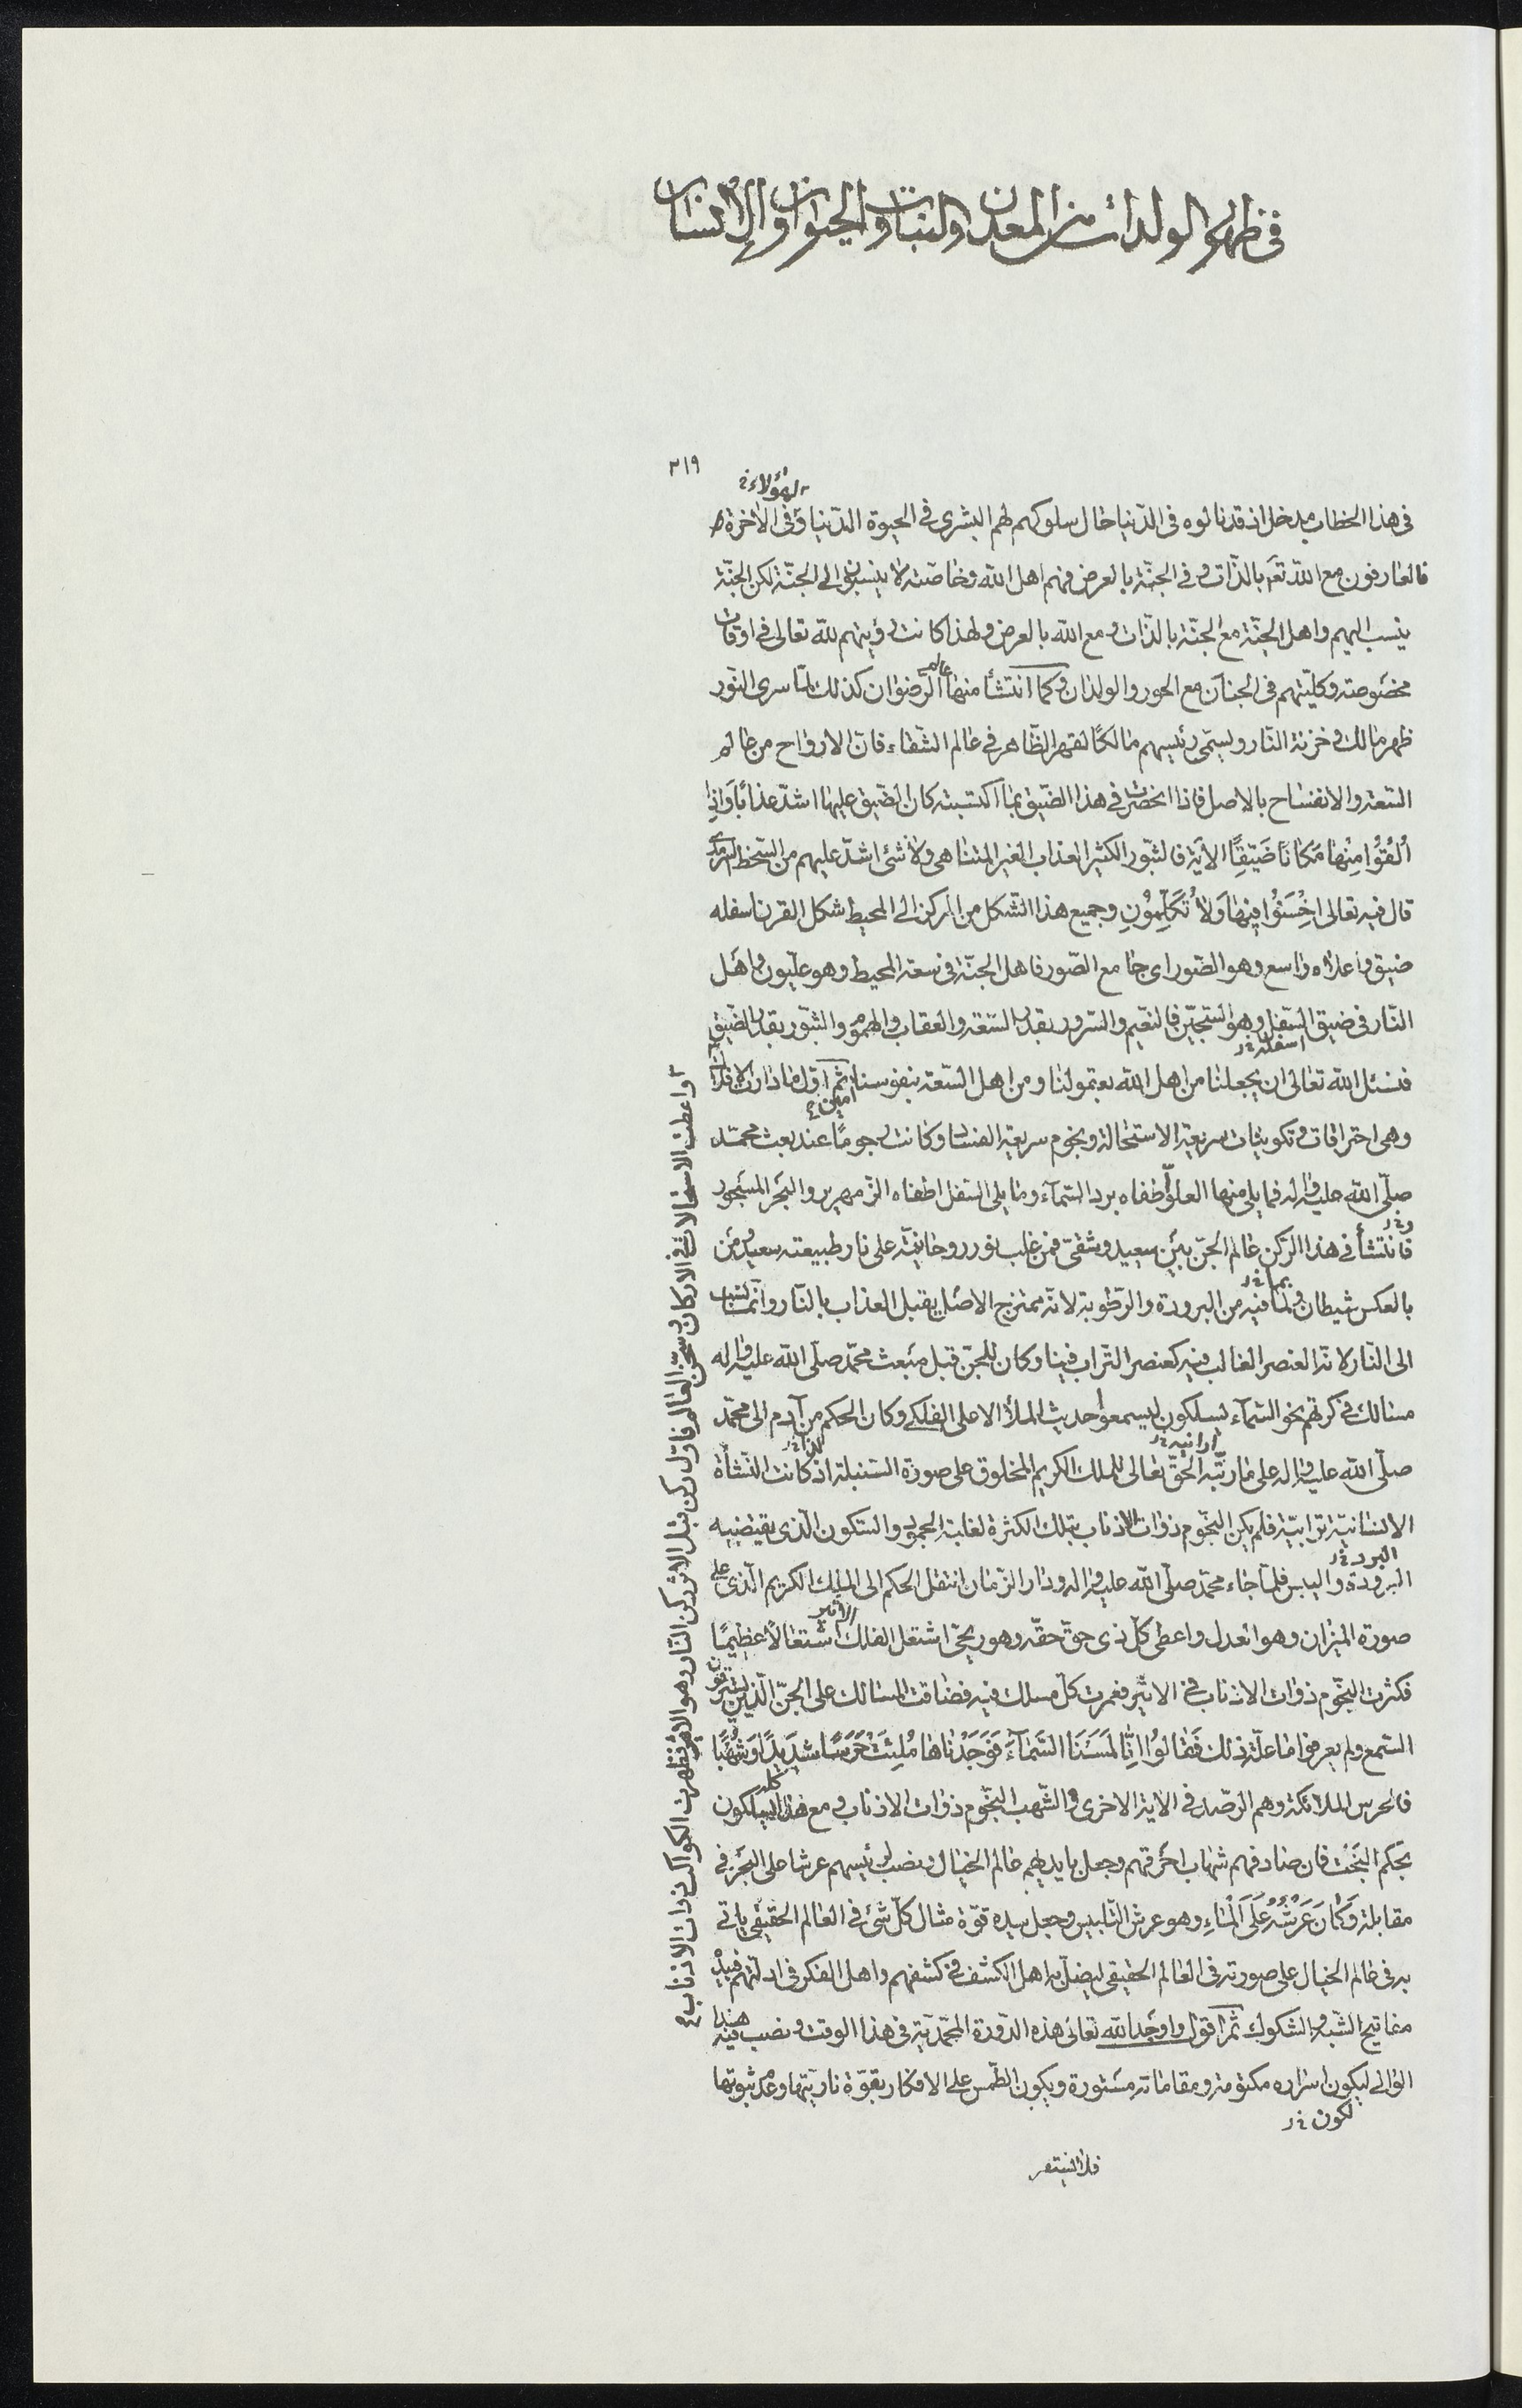 في ظهور المولدات من المعدن والنبات والحيوان والإنسان
٣١٩
لهؤلاء خ
في هذا الخطاب مدخل اذ قد نالوه في الدّنيا حال سلوكهم لهم البشرى في الحيوة الدّنيا وفي الآخرة
فالعارفون مع اللّه تعم بالذّات و في الجنّة بالعرض فهم اهل اللّه وخاصّته لا ينسبون الى الجنّة لكن الجنّة
ينسب اليهم واهل الجنّة مع الجنّة بالذّات و مع اللّه بالعرض ولهذا كانت رؤيتهم للّه تعالى في اوقات
مخصوصته وكلّيتهم في الجنان مع الحور والولدان وكما انتشأ منها عالم الرّضوان كذلك لمّا سرى النّور
ظهر مالك و خزنة النّار ويسمّى رئيسهم مالكًا لقهر الظّاهر في عالم الشّقاء فانّ الارواح من عالم
السّعة والانفساح بالاصل فاذا انحصرت في هذا الضّيق بما اكتسبته كان الضّيق عليها اشدّ عذابًا وَاِذا
اُلْقُوا مِنْها مَكانًا ضَيّقًا الآية فالثّبور الكثير العذاب الغير المتناهي ولا شئ اشدّ عليهم من السّخط السّرمدى
قال فيه تعالى اِخْسَئُوا فيها وَلا تُكَلِّمُونِ وجميع هذا الشّكل من المركز الى المحيط شكل القرن اسفله
ضيق واعلاه واسع وهو الصّور اى جامع الصّور فاهل الجنّة في سعة المحيط وهو علّيون واهل
النّار في ضيق السّفل وهو السّجّين فالنّعيم والسّرور بقدر السّعة والعقاب والهموم والثّبور بقدر الضّيق
اسفله خ ر
فنسئل اللّه تعالى ان يجعلنا من اهل اللّه بعقولنا ومن اهل السّعة بنفوسنا ثمّ اوّل ما دارت الافلاك
امين ع
وهي احتراقات و تكوينات سريعة الاستحالة ونجوم سريعة الفساد وكانت رجومًا عند بعث محمّد
صلّى اللّه عليه واله فما يلى منها العلوّ اطفاه برد السّمآء وما يلى السّفل اطفاه الزّمهرير والبحر المسجور
و خ ر
فانتشأ في هذا الرّكن عالم الجنّ بين سعيد وشقىّ فمن غلب نور روحانيّته على نار طبيعته سعيد ومن
بما خ ر
بالعكس شيطان ولما فيه من البرودة والرّطوبة لانّه ممتزج الاصل يقبل العذاب بالنّار وانّما نسب
الى النّار لانّه العنصر الغالب فيه كعنصر التّراب فينا وكان للجنّ قبل مبعث محمّد صلّى اللّه عليه واله
مسالك في كرتهم نحو السّمآء يسلكون ليسمعوا حديث الملأ الاعلى الفلكى وكان الحكم من آدم الى محمّد
صلّى اللّه عليه واله على ما رتّبه الحقّ تعالى للملك الكريم المخلوق على صورة السّنبلة اذ كانت النّشأة
الانسانيّة ترابيّة فلم يكن النّجوم ذوات الاذناب بتلك الكثرة لغلبة الجمود والسّكون الّذى يقتضيه
البرد خ ر
البرودة واليبس فلمّا جاء محمّد صلّى اللّه عليه واله ودار الزّمان انتقل الحكم الى الملك الكريم الّذى على
صورة الميزان وهو العدل واعطى كلّ ذى حقّ حقّه وهو ريحىّ اشتعل الفلك الاثير اشتعالًا عظيمًا
فكثرت النّجوم ذوات الاذناب في الاثير فعمرت كلّ مسلك فيه فضاقت المسالك على الجنّ الّذين يسترقون
السّمع ولم يعرفوا ما علّة ذلك فَقالُوا اِنّا لَمَسْنَا السَّمآءَ فَوَجَدْناها مُلِئَتْ حَرَسًا شَديدًا وَشُهُبًا
فالحرس الملائكة وهم الرّصد في الاية الاخرى والشّهب النّجوم ذوات الاذناب و مع هذا كله يسلكون
بحكم البَخْت فان صادفهم شهاب احرقهم وجعل بايديهم عالم الخيال ونصب لرئيسهم عرشا على البحر في
مقابلة وَكانَ عَرْشُهُ عَلَى الْماءِ وهو عرش التّلبيس وجعل بيده قوّة مثال كلّ شئ في العالم الحقيقى ياتى
به في عالم الخيال على صورته في العالم الحقيقى ليضلّ به اهل الكشف في كشفهم واهل الفكر في ادلّتهم فبيده
مفاتيح الشّبه والشكوك ثمّ اقول واوجد اللّه تعالى هذه الدّورة المحمّديّة في هذا الوقت و نصب فيه هذا
الوالى ليكون اسراره مكتومة ومقاماته مستورة ويكون الطّمس على الافكار بقوّة ناريّتها وعدم ثبوتها
لكون خ ر
واعطت الاستحالات في الاركان وسخن العالم فاوّل ركن قبل الاثر ركن النّار وهو الاثير فظهرت الكواكب ذوات الاذناب